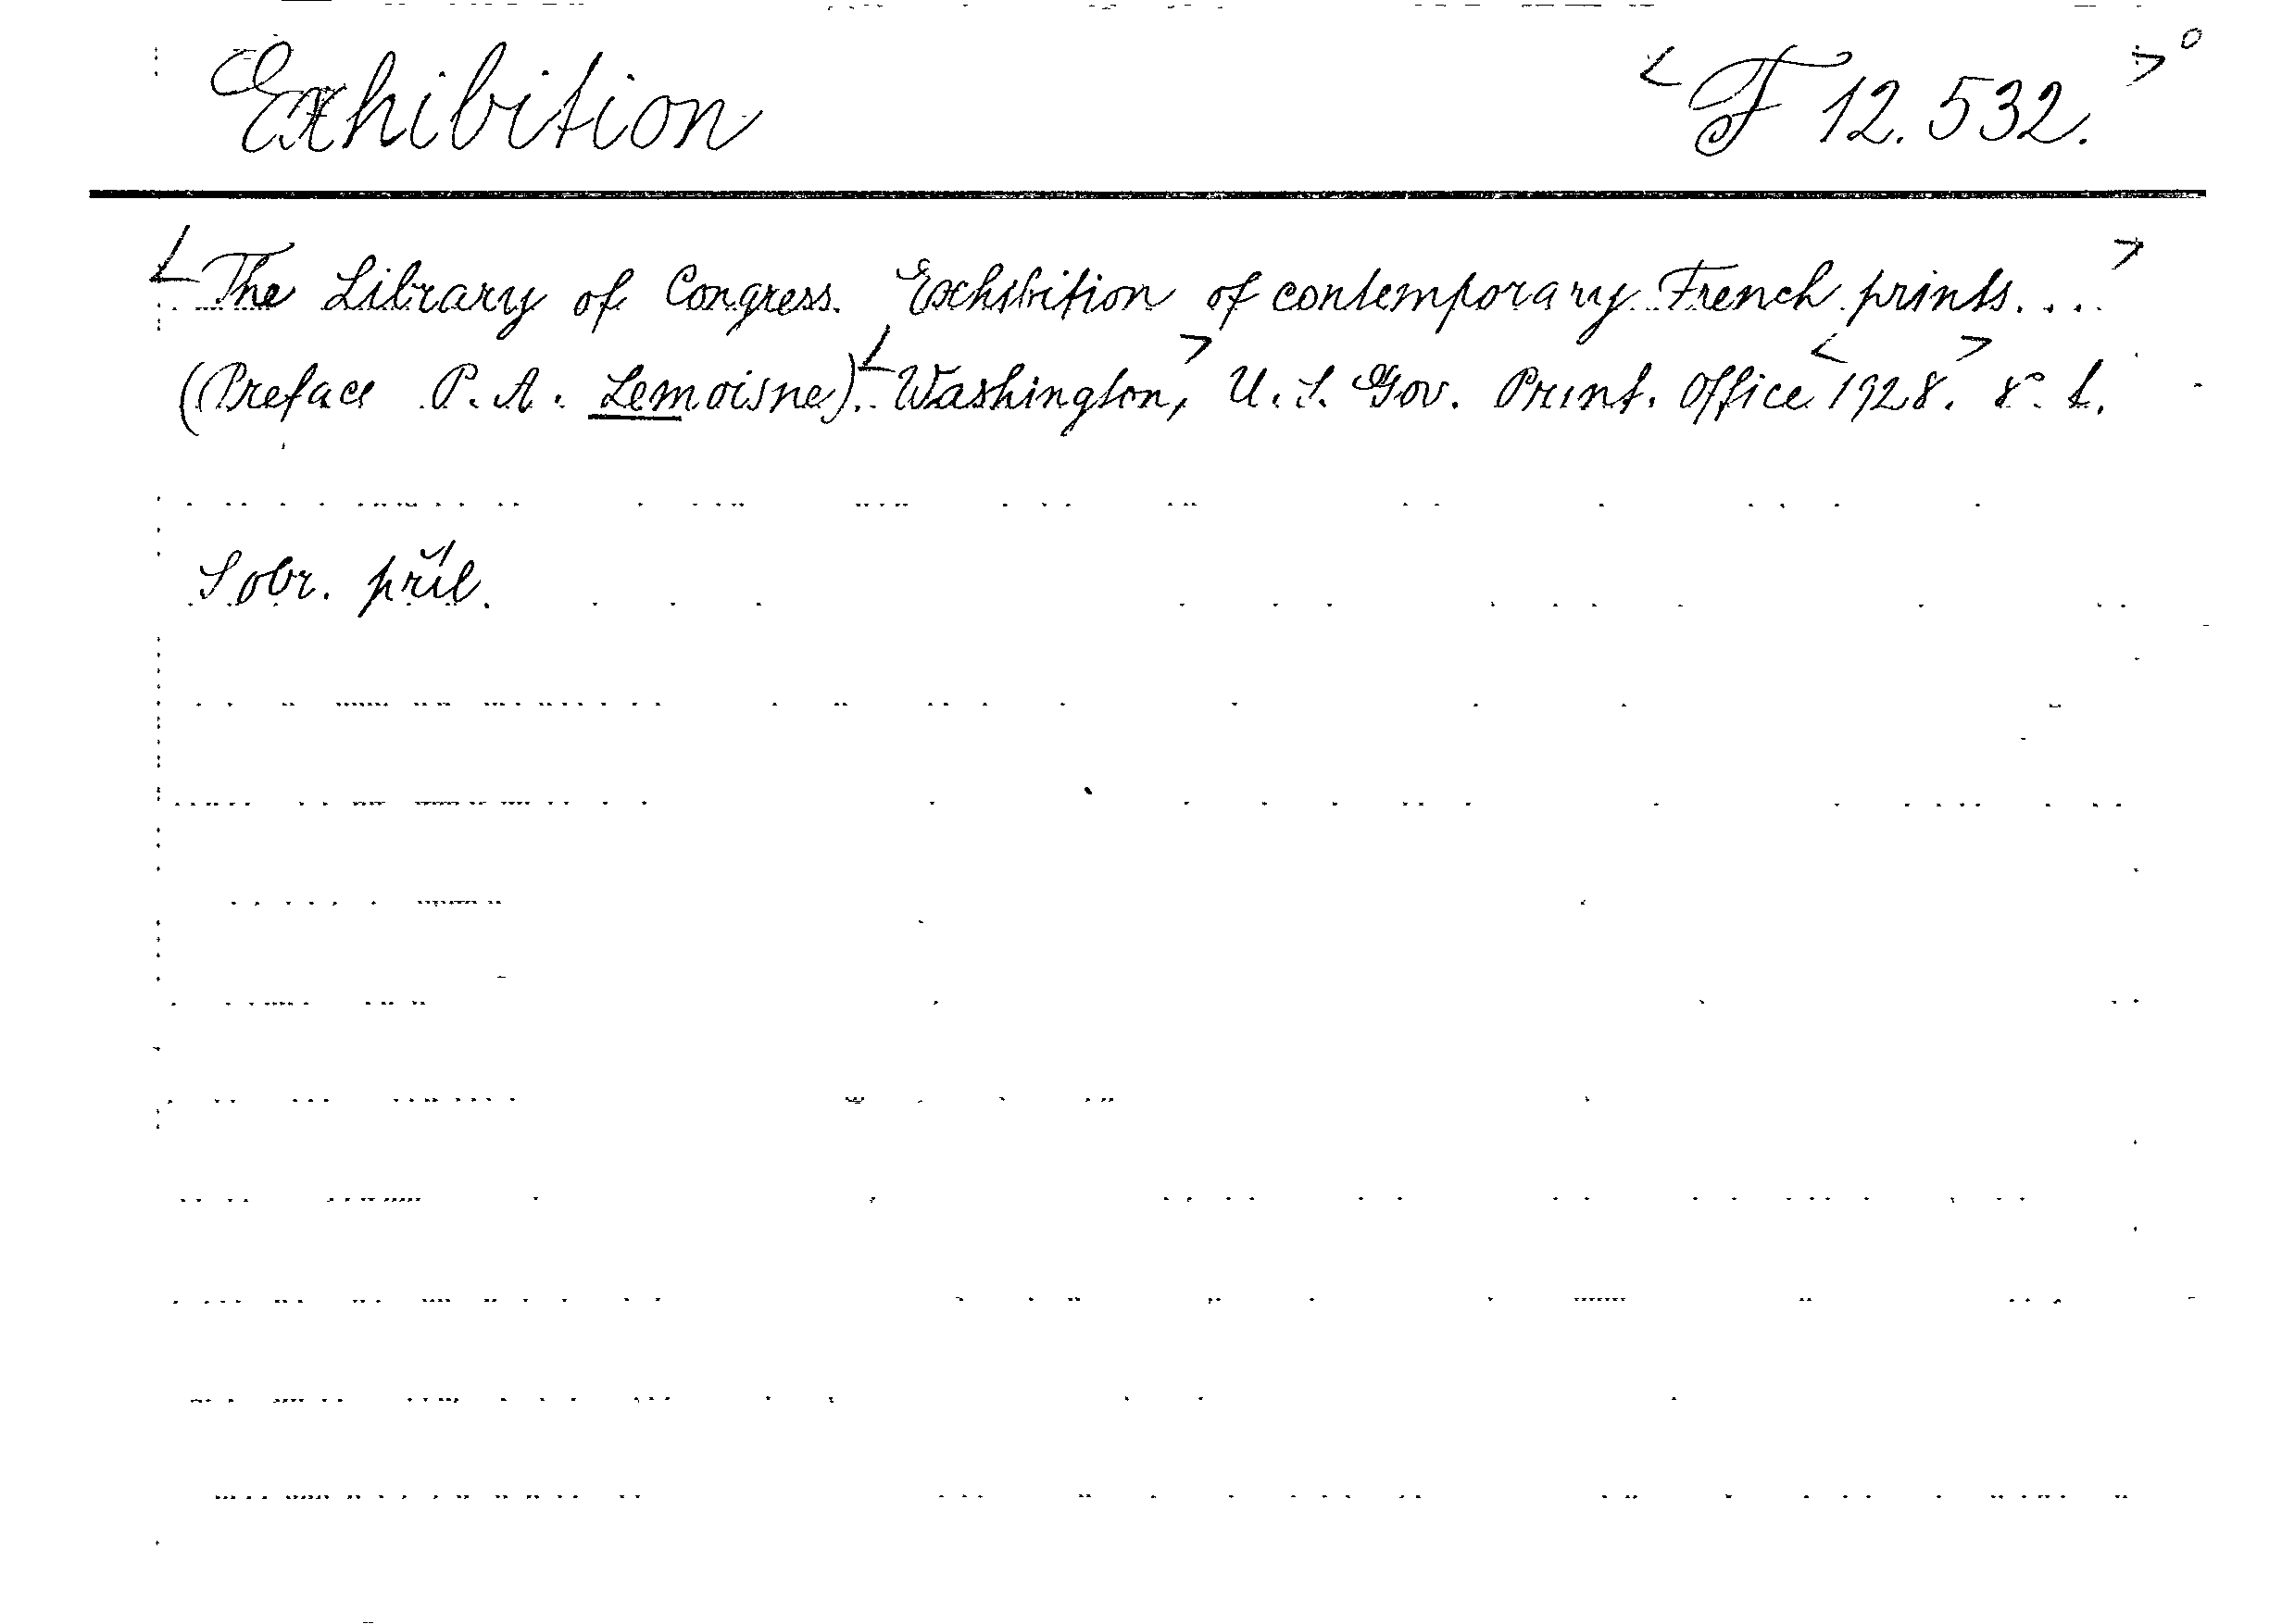 Exhibition <F 12.532.>°
<The Library of Congress. Exhibition of contemporary French prints....>
(Preface P. A. Lemoisne). <Washington,> U. S. Gov. Print. Office <1928.> 8°. t.
S obr. příl.